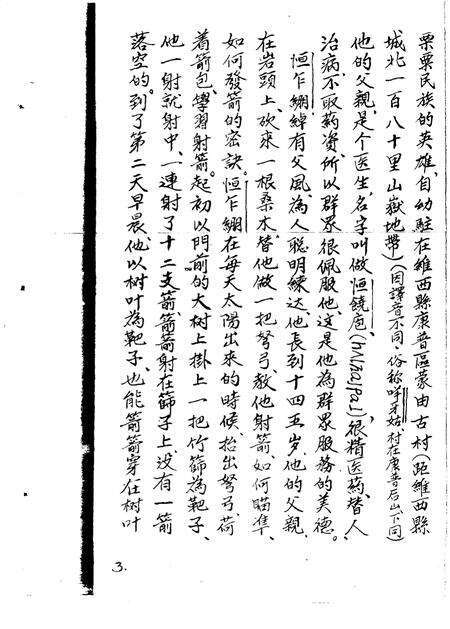 栗粟民族的英雄，自幼駐在維西縣康普區蒙由古村（距維西縣
城北一百八十里山嶽地帶）（因譯音不同，俗称咩子姑，村在康普后山下同）
他的父親，是个医生，名字叫做恒饒扈，很精医葯，替人
治病，不取葯資，所以群眾很佩服他，這是他為群眾服務的美德。
恒乍绷綽有父風，為人聰明練达，他長到十四五岁，他的父親，
在岩頭上，砍來一根桑木，替他做一把弩弓，教他射箭，如何瞄準、
如何發箭的密訣。恒乍绷在每天太陽出來的時候，抬出弩弓，荷
着箭包，學習射箭。起初以門前的大树上掛上一把竹篩為靶子，
他一射就射中，一連射了十二支箭，箭箭射在篩子上，没有一箭
落空的。到了第二天早晨，他以树叶為靶子，也能箭箭穿在树叶
3.